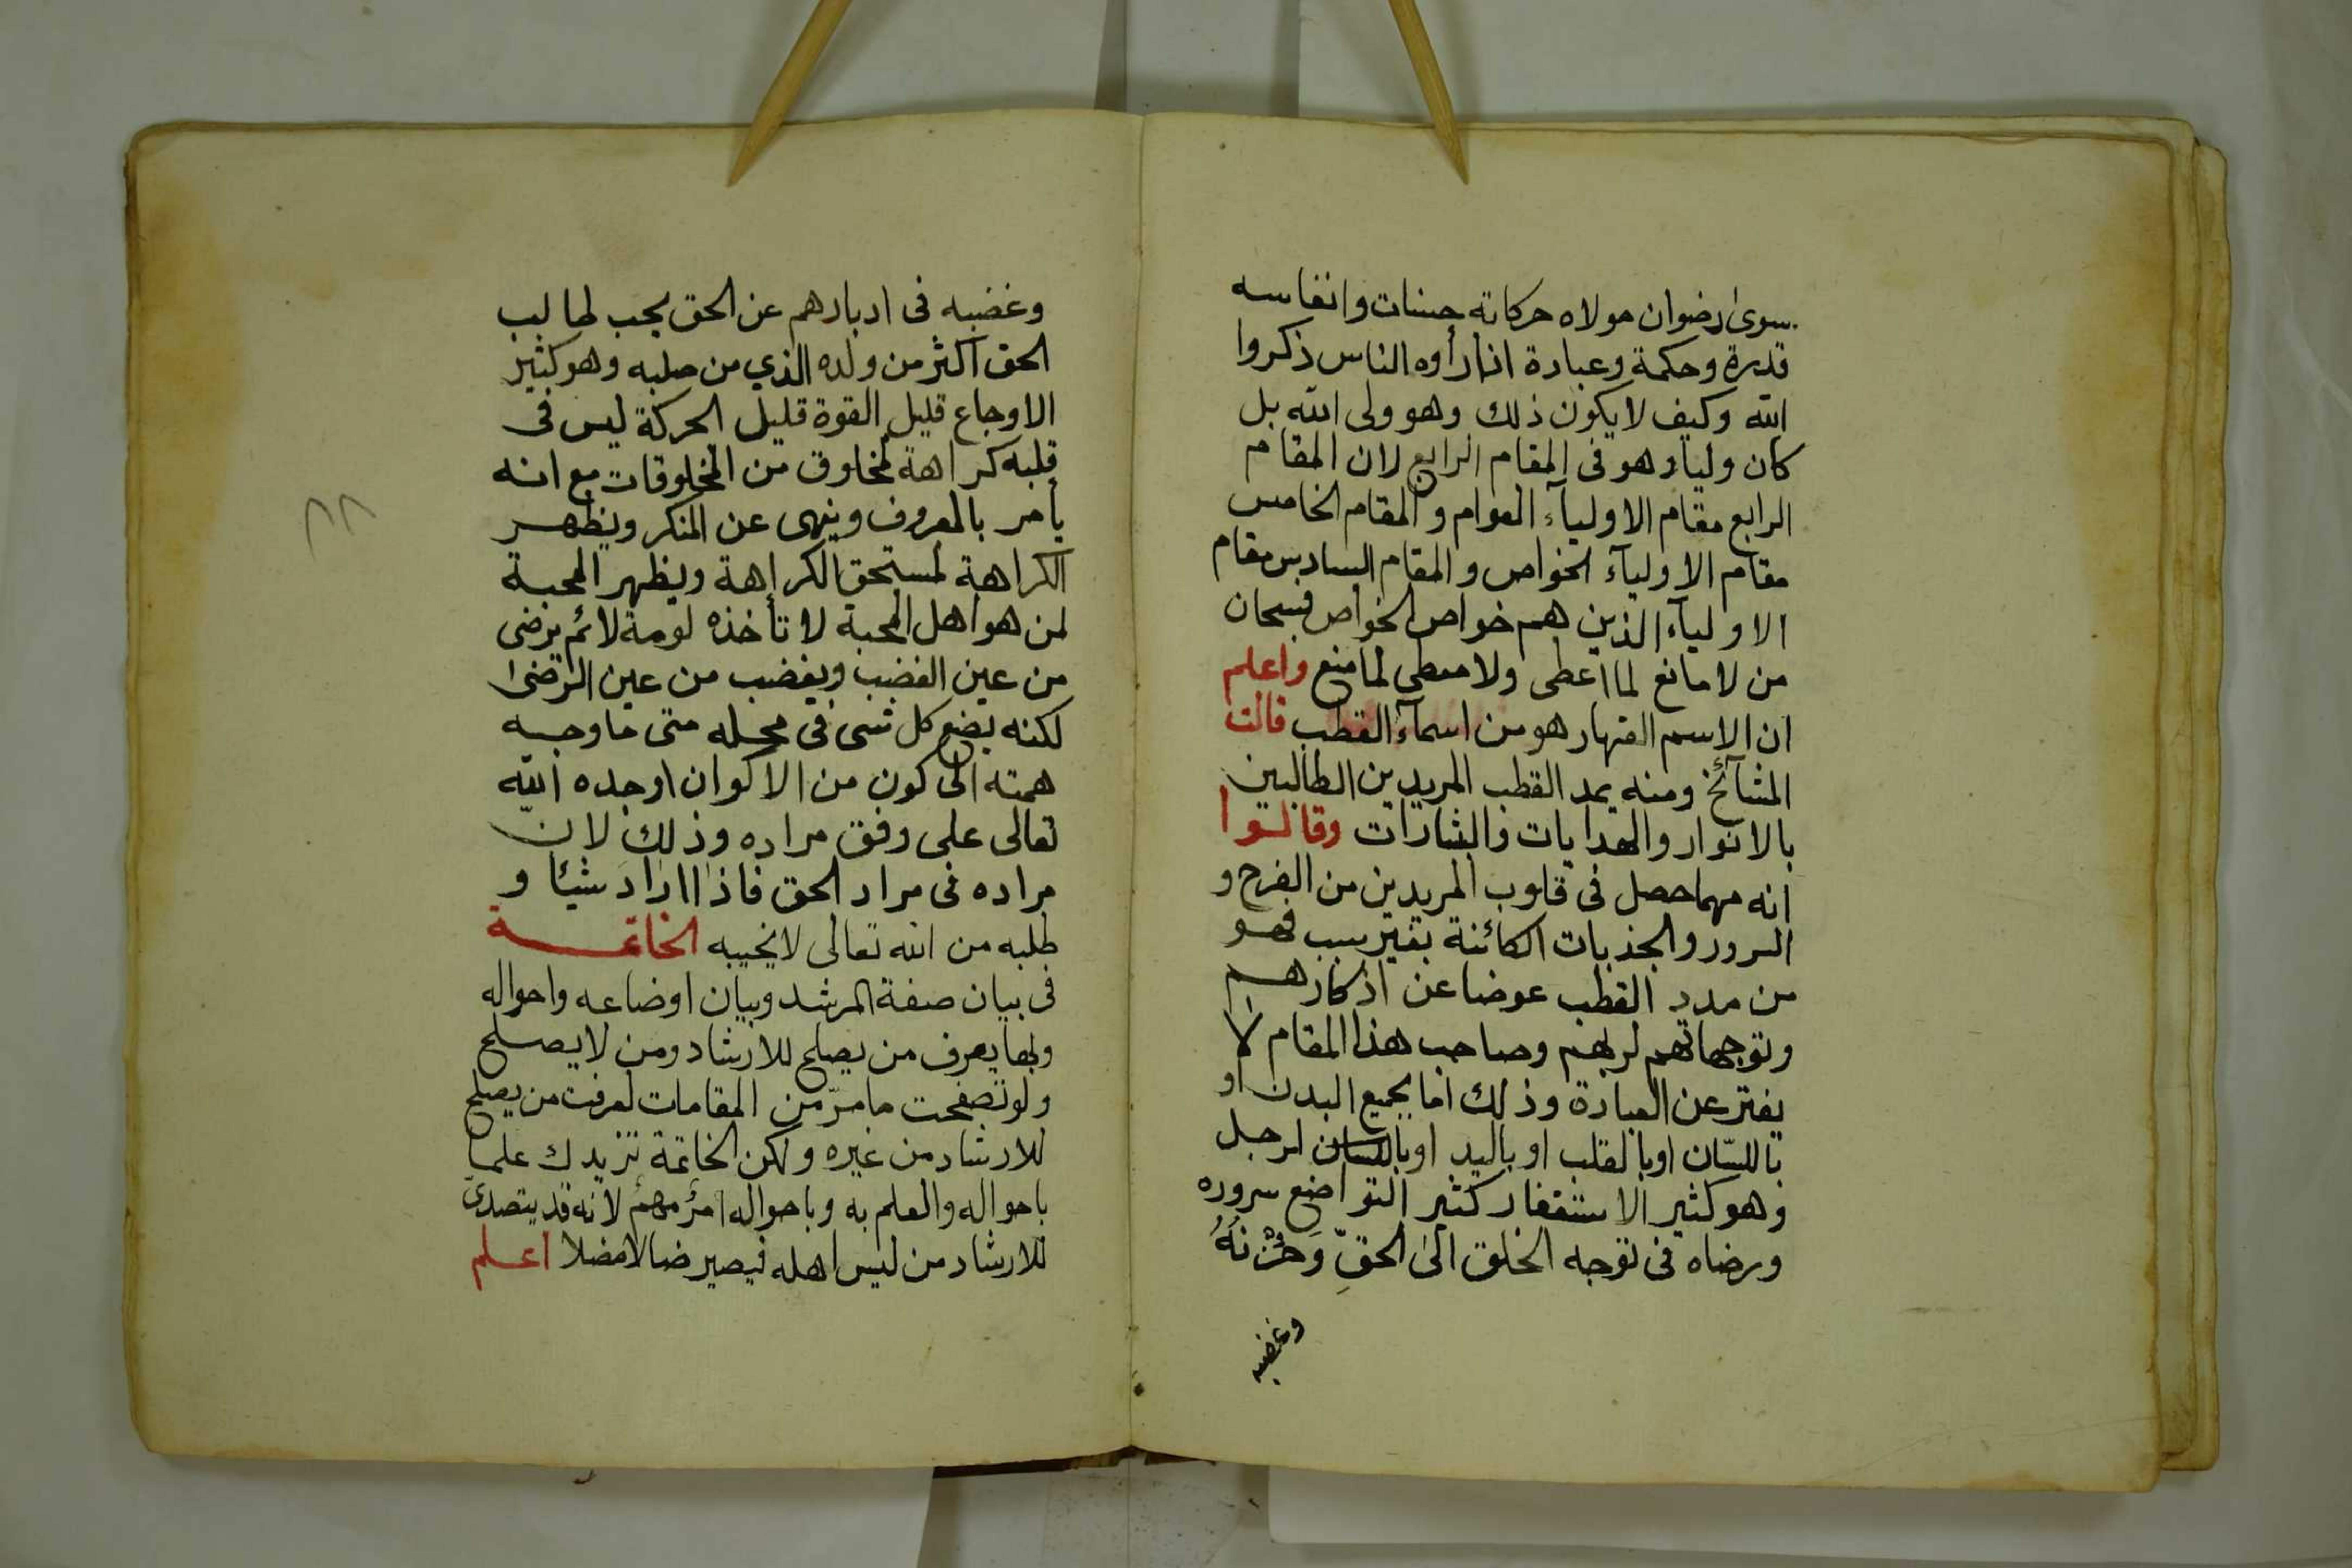 سوى رضوان مولاه حركاته حسنات وانفاسه
قدرة وحكمة وعبادة اذا رأوه الناس ذكروا
الله وكيف لا يكون ذلك وهو ولى الله بل
كان وليا وهو فى المقام الرابع لان المقام
الرابع مقام الاوليآء العوام والمقام الخامس
مقام الاوليآء الخواص والمقام السادس مقام
الاوليآء الذين هم خواص الخواص فسبحان
من لا مانع لما اعطى ولا معطى لما منع واعلم
ان الاسم القهار هو من اسمآء القطب قالت
المشآئخ ومنه يمد القطب المريدين الطالبين
بالانوار والهدايات والبشارات وقالوا
انه مهما حصل فى قلوب المريدين من الفرح و
السرور والجذبات الكائنة بغير سبب فهو
من مدد القطب عوضا عن اذكارهم
وتوجهاتهم لربهم وصاحب هذا المقام لا
يفتر عن العبادة وذلك اما بجميع البدن او
باللسّان اوبالقلب او باليد اوباللسان لرجل
وهو كثير الاستغفار كثير التواضع سروره
ورضاه فى توجه الخلق الى الحقِّ وَحُزْنُهُ
وغضبه
وغضبه فى ادبارهم عن الحق يحب لطالب
الحق اكثر من ولده الذي من صلبه وهو كثير
الاوجاع قليل القوة قليل الحركة ليس فى
قلبه كراهة لمخلوق من المخلوقات مع انه
يأمر بالمعروف وينهى عن المنكر ويظهر
الكراهة لمستحق الكراهة ويظهر المحبة
لمن هو اهل المحبة لا تأخذه لومة لائم يرضى
من عين الغضب ويغضب من عين الرضى
لكنه يضع كل شى فى محله متى ما وجه
همته الى كون من الاكوان اوجده الله
تعالى على وفق مراده وذلك لان
مراده فى مراد الحق فاذا اراد شيئا و
طلبه من الله تعالى لا يخيبه الخاتمة
فى بيان صفة المرشد وبيان اوضاعه واحواله
وبها يعرف من يصلح للارشاد ومن لا يصلح
ولو تصفحت ما مرّ من المقامات لعرفت من يصلح
للارشاد من غيره ولكن الخاتمة تزيدك علما
باحواله والعلم به وباحواله امرٌ مهمٌ لانه قد يتصدى
للارشاد من ليس اهله فيصير ضالا مضلا اعلم
٨٨